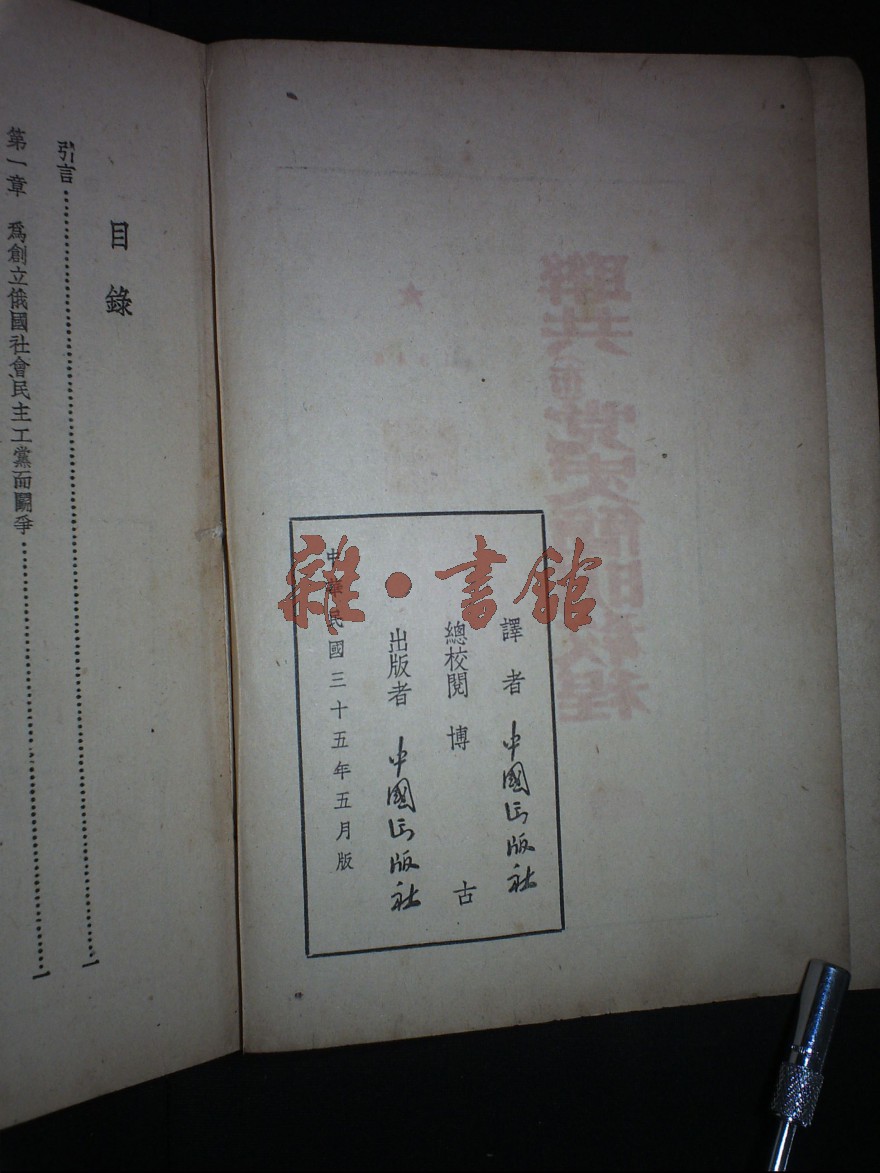 譯者 中國出版社
總校閱 博古
出版者 中國出版社
中華民國三十五年五月版
雜·書館
聯共 黨史簡明教程
目錄
引言
第一章 爲創立俄國社會民主工黨而鬭爭